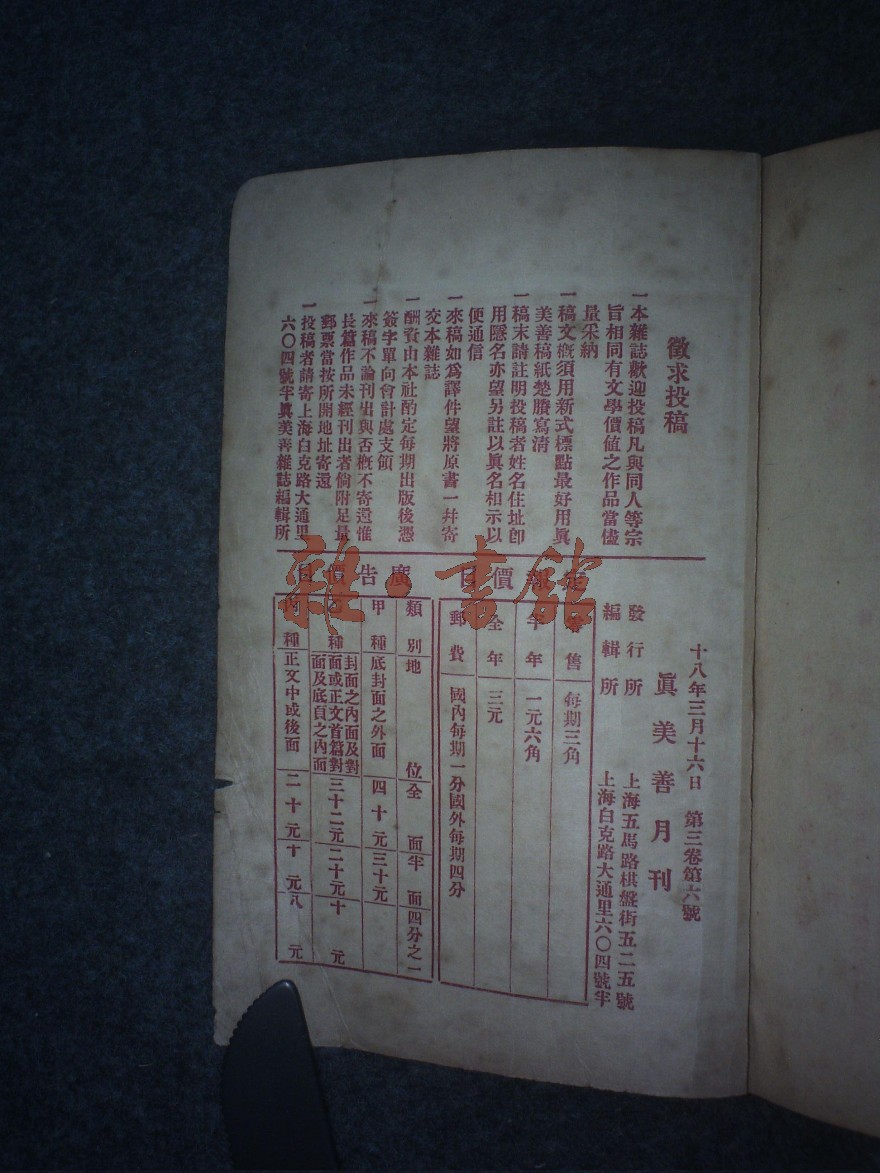 徵求投稿
一本雜誌歡迎投稿凡與同人等宗
旨相同有文學價值之作品當儘
量采納
一稿文槪須用新式標點最好用眞
美善稿紙楚謄寫清
一稿末請註明投稿者姓名住址卽
用隱名亦望另註以眞名相示以
便通信
一來稿如爲譯件望將原書一幷寄
交本雜誌
一酬資由本社酌定每期出版後憑
簽字單向會計處支領
一來稿不論刊出與否槪不寄還惟
長篇作品未經刊出者倘附足量
郵票當按所開地址寄還
一投稿者請寄上海白克路大通里
六〇四號半眞美善雜誌編輯所
十八年三月十六日 第三卷第六號
眞美善月刊
發行所 上海五馬路棋盤街五二五號
編輯所 上海白克路大通里六〇四號半
報價目
售 每期三角
半年 一元六角
全年 三元
郵費 國內每期一分國外每期四分
廣告價目
類別 地位 全面 半面 四分之一
甲種 底封面之外面 四十元 三十元
乙種 封面之內面及對面或正文首篇對面及底頁之內面 三十二元 二十元 十元
丙種 正文中或後面 二十元 十元 八元
雜·書館